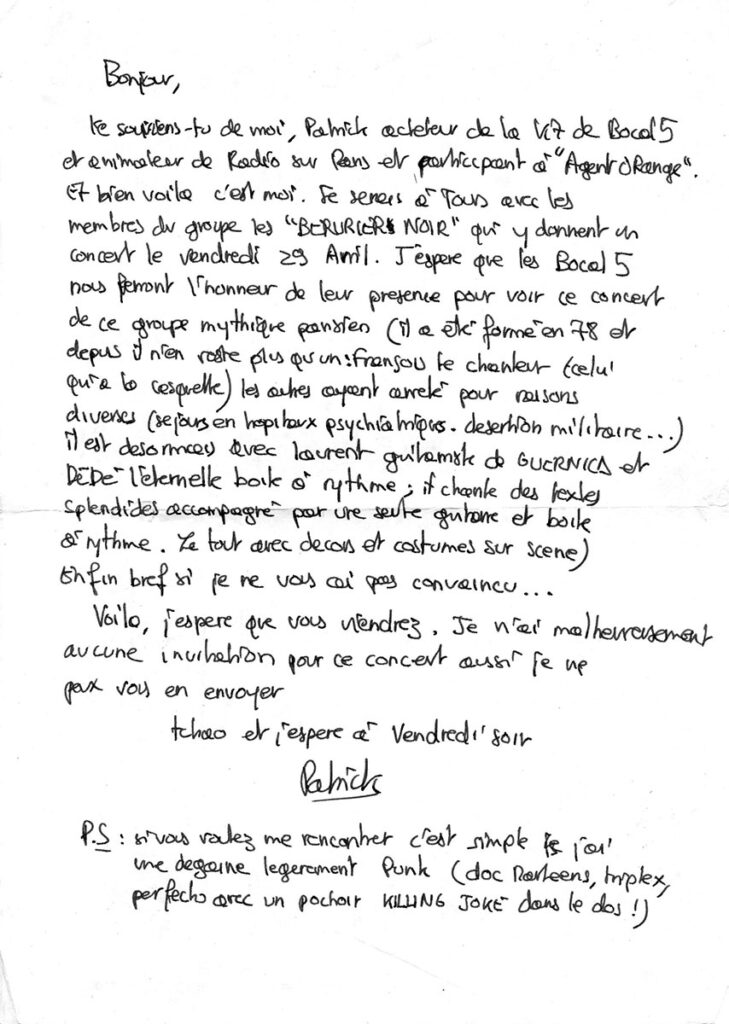 Bonjour,
te souviens-tu de moi, Patrick acheteur de la K7 de Bocal 5
et animateur de Radio sur Paris et participant à "Agent ORange".
Et bien voila c'est moi. Je serais à Tours avec les
membres du groupe les "BERURIERS NOIR" qui y donnent un
concert le vendredi 29 Avril. J'espere que les Bocal 5
nous feront l'honneur de leur presence pour voir ce concert
de ce groupe mythique parisien (il a été formé en 78 et
depuis il n'en reste plus qu'un : françois le chanteur (celui
qui a la casquette) les autres ayant arreté pour raisons
diverses (sejours en hopitaux psychiatriques. desertion militaire...)
il est desormais avec laurent guitariste de GUERNICA et
DEDE l'éternelle boite à rythme ; il chante des textes
splendides accompagné par une seule guitare et boite
à rythme. Le tout avec decors et costumes sur scene)
Enfin bref si je ne vous ai pas convaincu...
Voila, j'espere que vous viendrez. Je n'ai malheureusement
aucune invitation pour ce concert aussi je ne
peux vous en envoyer
tchao et j'espere à Vendredi soir
Patrick
P.S : si vous voulez me rencontrer c'est simple j'ai
une degaine legerement Punk (doc Marteens, triplex,
perfecto avec un pochoir KILLING JOKE dans le dos !)